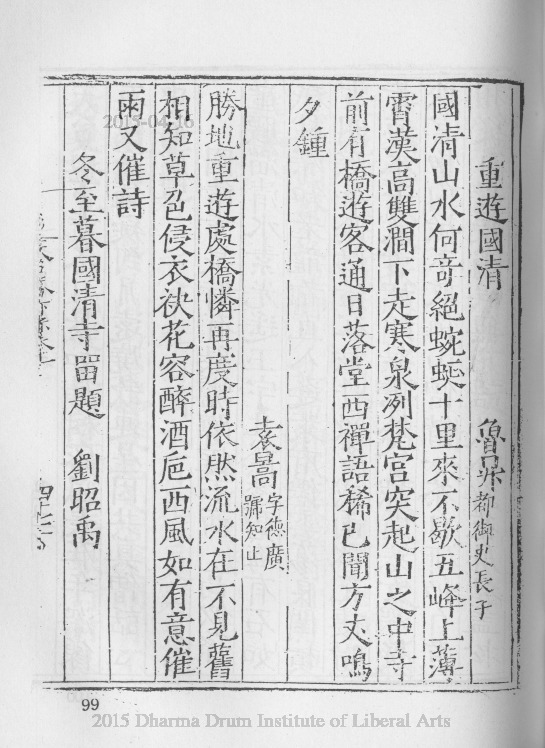 重遊國清　魯昇都御史長子
國清山水何奇絕蜿蜒十里來不歇五峰上薄
霄漢高雙澗下走寒泉冽梵宮突起山之中寺
前有橋遊客通日落堂西禪語稀已聞方丈鳴
夕鍾
袁暠字德廣號知止
勝地重遊處橋憐再度時依然流水在不見舊
相知草色侵衣袂花容醉酒巵西風如有意催
雨又催詩
冬至暮國清寺畱題　劉昭禹
99
2015-04-16
2015 Dharma Drum Institute of Liberal Arts